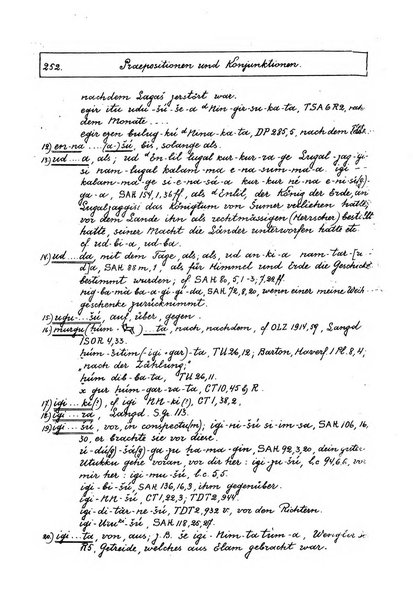 252. Praepositionen und Konjunktionen.
nachdem Lagaš zerstört war.
egir itu udu-šú-še-a ᵈNin-gir-su-ka-ta, TSA 6 R2, nach
dem Monate ....
egir ezen bulug-kú ᵈNina-ka-ta, DP 285,5, nach dem
12) en-na ....(-a)-šú, bis, solange als.
13) ud....a, als; ud ᵈEn-lil lugal kur-kur-ra-ge Lugal-zag-gi-
si nam-lugal kalam-ma e-na-sum-ma-a igi-
kalam-ma-ge si-e-na-sá-a kur-kur né-na e-ni-
ga-a, SAK 154, 1, 36 ff, als ᵈEnlil, der König der Erde, an
Lugalzaggisi das Königtum von Sumer verliehen hatte,
vor dem Lande ihn als rechtmässigen (Herrscher)
hatte, seiner Macht die Länder unterworfen hatte etc
cf ud-bi-a, ud-ba.
14) ud....da, mit dem Tage, als, als, ud an-ki-a nam-tar-[u-
d]a, SAK 88 m, 1, als für Himmel und Erde die Geschicke
bestimmt wurden; cf SAK 80, 5, 1-3, 7, 22 ff.
nig-ba-mà ba-a-gi-gi-da, SAK 72, 8, 20, wenn einer meine Weih-
geschenke zurücknimmt.
15) ugu-...šú, auf, über, gegen.
16) murgu (húm- )....ta, nach, nachdem, cf OLZ 1914, 59, Langd
ISOR 4,33.
húm-šitim(-igi-gar)-ta, TU 26,12; Barton, Haverf I Pl. 8,4;
„nach der Zählung;"
húm dib-ba-ta, TU 26,11.
x gur húm-gar-ta, CT 10, 45 b, R.
17) igi...ki(!), cf igi NN-ki(!), CT 1, 38, 2.
18) igi...ra, Langd. S.Gr. 113.
19) igi...šú, vor, in conspectu(m); igi-ni-šú si-im-sa, SAK 106, 16,
30, er brachte sie vor diese.
ú-dú(g)-šá(g)-ga-zu ha-ma-gin, SAK 92, 3, 20, dein guter
Utukku gehe voran, vor dir her: igi-zu-šú, l.c 94, 6,6, vor
mir her: igi-mu-šú, l.c. 5,5.
igi-bi-šú, SAK 136, 16, 3, ihm gegenüber.
igi-NN-šú, CT 1, 22, 3; TDT 2, 944.
igi-di-tár-ne-šú, TDT 2, 932 V, vor den Richtern.
igi-Uruᵏⁱ-šú, SAK 118, 26, 27.
20) igi...ta, von, aus; z.B. še igi-Nim-ta túm-a,
R5, Getreide, welches aus Elam gebracht war.